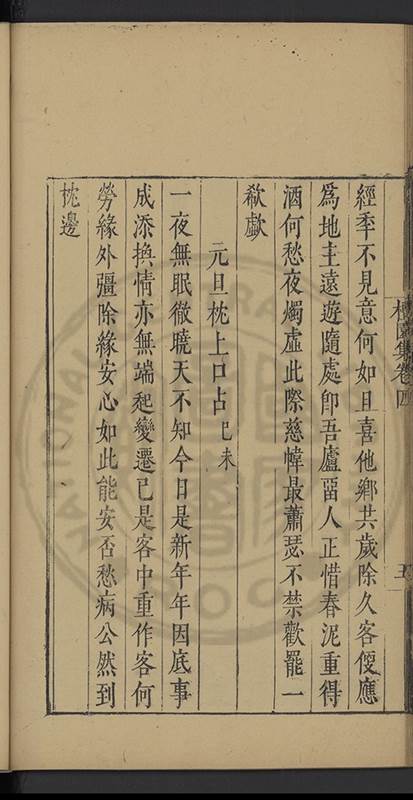 經季不見意何如且喜他鄉共歲除久客便應
爲地主遠遊隨處卽吾廬畱人正惜春泥重得
酒何愁夜燭虛此際慈幃最蕭瑟不禁歡罷一
欷歔
元旦枕上口占己未
一夜無眠徹曉天不知今日是新年年因底事
成添換情亦無端起變遷已是客中重作客何
勞緣外彊除緣安心如此能安否愁病公然到
枕邊
集卷四
五